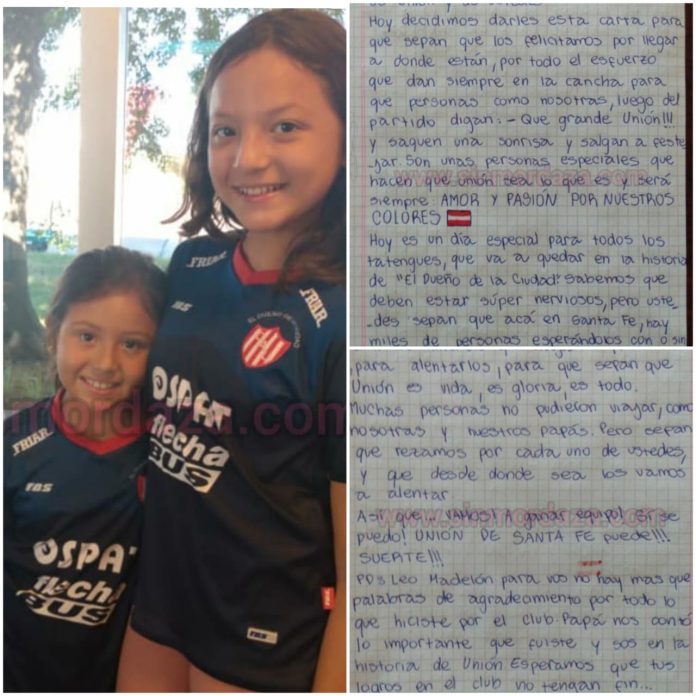 FRIAR
FRIAR
RAS
EL DUEÑO DE LA CIUDAD
OSPAT
flecha
BUS
RAS
FRIAR
RAS
OSPAT
flecha
BUS
mordaza.com
Hoy decidimos darles esta carta para
que sepan que los felicitamos por llegar
a donde están, por todo el esfuerzo
que dan siempre en la cancha para
que personas como nosotras, luego del
partido digan: - Que grande Unión!!!
y saquen una sonrisa y salgan a feste
-jar. Son unas personas especiales que
hacen que unión sea lo que es y será
siempre: AMOR Y PASIÓN POR NUESTROS
COLORES
Hoy es un día especial para todos los
tatengues, que va a quedar en la historia
de "El Dueño de la Ciudad". Sabemos que
deben estar súper nerviosos, pero uste-
-des sepan que acá en Santa Fe, hay
miles de personas esperándolos con o sin
para alentarlos, para que sepan que
Unión es vida, es gloria, es todo.
Muchas personas no pudieron viajar, como
nosotras y nuestros papás. Pero sepan
que rezamos por cada uno de ustedes,
y que desde donde sea los vamos
a alentar.
Así que ¡¡ VAMOS!! A ganar equipo! Si se
puedo! UNION DE SANTA FE puede!!!
SUERTE!!!
PD: Leo Madelón para vos no hay mas que
palabras de agradecimiento por todo lo
que hiciste por el club. Papá nos contó
lo importante que fuiste y sos en la
historia de Unión. Esperamos que tus
logros en el club no tengan fin...